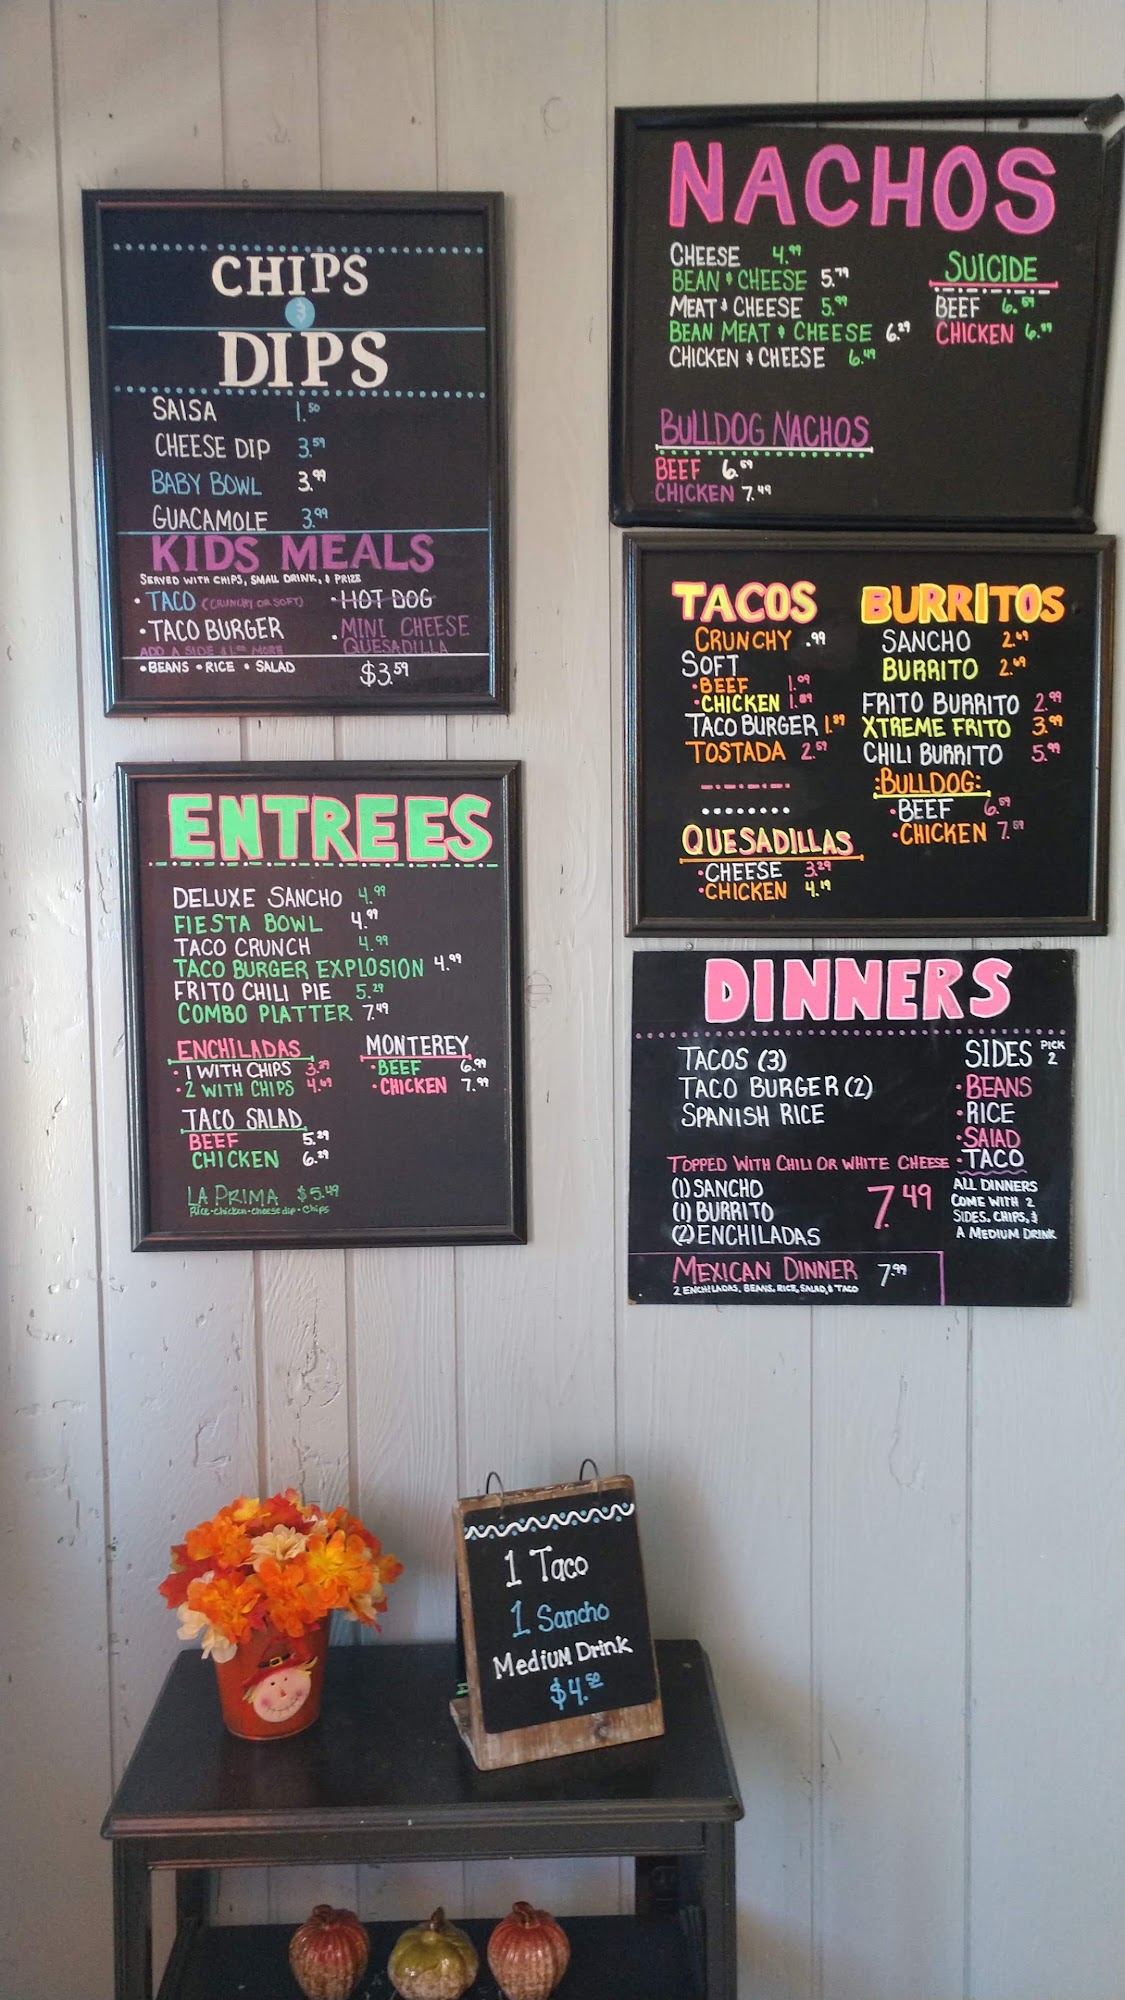 CHIPS
&
DIPS
SALSA 1.50
CHEESE DIP 3.59
BABY BOWL 3.99
GUACAMOLE 3.99
KIDS MEALS
SERVED WITH CHIPS, SMALL DRINK, & PRIZE
• TACO (CRUNCHY OR SOFT) • HOT DOG
• TACO BURGER • MINI CHEESE
QUESADILLA
ADD A SIDE $1.00 MORE
• BEANS • RICE • SALAD $3.59
ENTREES
DELUXE SANCHO 4.99
FIESTA BOWL 4.99
TACO CRUNCH 4.99
TACO BURGER EXPLOSION 4.99
FRITO CHILI PIE 5.29
COMBO PLATTER 7.49
ENCHILADAS
• 1 WITH CHIPS 3.29
• 2 WITH CHIPS 4.69
MONTEREY
• BEEF 6.99
• CHICKEN 7.99
TACO SALAD
BEEF 5.29
CHICKEN 6.29
LA PRIMA $5.49
Rice-Chicken-Cheese dip-Chips
NACHOS
CHEESE 4.99
BEAN & CHEESE 5.79
MEAT & CHEESE 5.99
BEAN MEAT & CHEESE 6.29
CHICKEN & CHEESE 6.49
SUICIDE
BEEF 6.59
CHICKEN 6.89
BULLDOG NACHOS
BEEF 6.59
CHICKEN 7.49
TACOS
CRUNCHY .99
SOFT
• BEEF 1.09
• CHICKEN 1.89
TACO BURGER 1.89
TOSTADA 2.59
QUESADILLAS
• CHEESE 3.29
• CHICKEN 4.19
BURRITOS
SANCHO 2.69
BURRITO 2.69
FRITO BURRITO 2.99
XTREME FRITO 3.99
CHILI BURRITO 5.99
:BULLDOG:
• BEEF 6.59
• CHICKEN 7.59
DINNERS
TACOS (3)
TACO BURGER (2)
SPANISH RICE
TOPPED WITH CHILI OR WHITE CHEESE
(1) SANCHO
(1) BURRITO
(2) ENCHILADAS
7.49
SIDES PICK 2
• BEANS
• RICE
• SALAD
• TACO
ALL DINNERS
COME WITH 2
SIDES, CHIPS, &
A MEDIUM DRINK
MEXICAN DINNER 7.99
2 ENCHILADAS, BEANS, RICE, SALAD, & TACO
1 Taco
1 Sancho
Medium Drink
$4.50